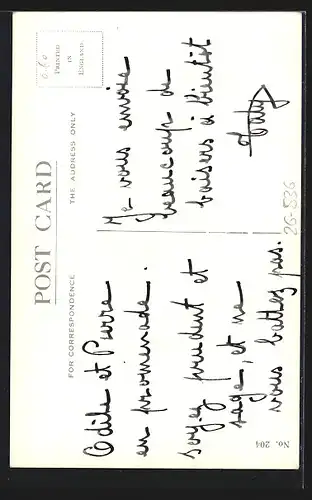 POST CARD
FOR CORRESPONDENCE
THE ADDRESS ONLY
PRINTED
IN
ENGLAND
0.60
Odile et Pierre
en promenade.
soyez prudent et
sage, et ne
vous battez pas.
Je vous envoie
beaucoup de
baisers à bientôt
26-536
No. 204